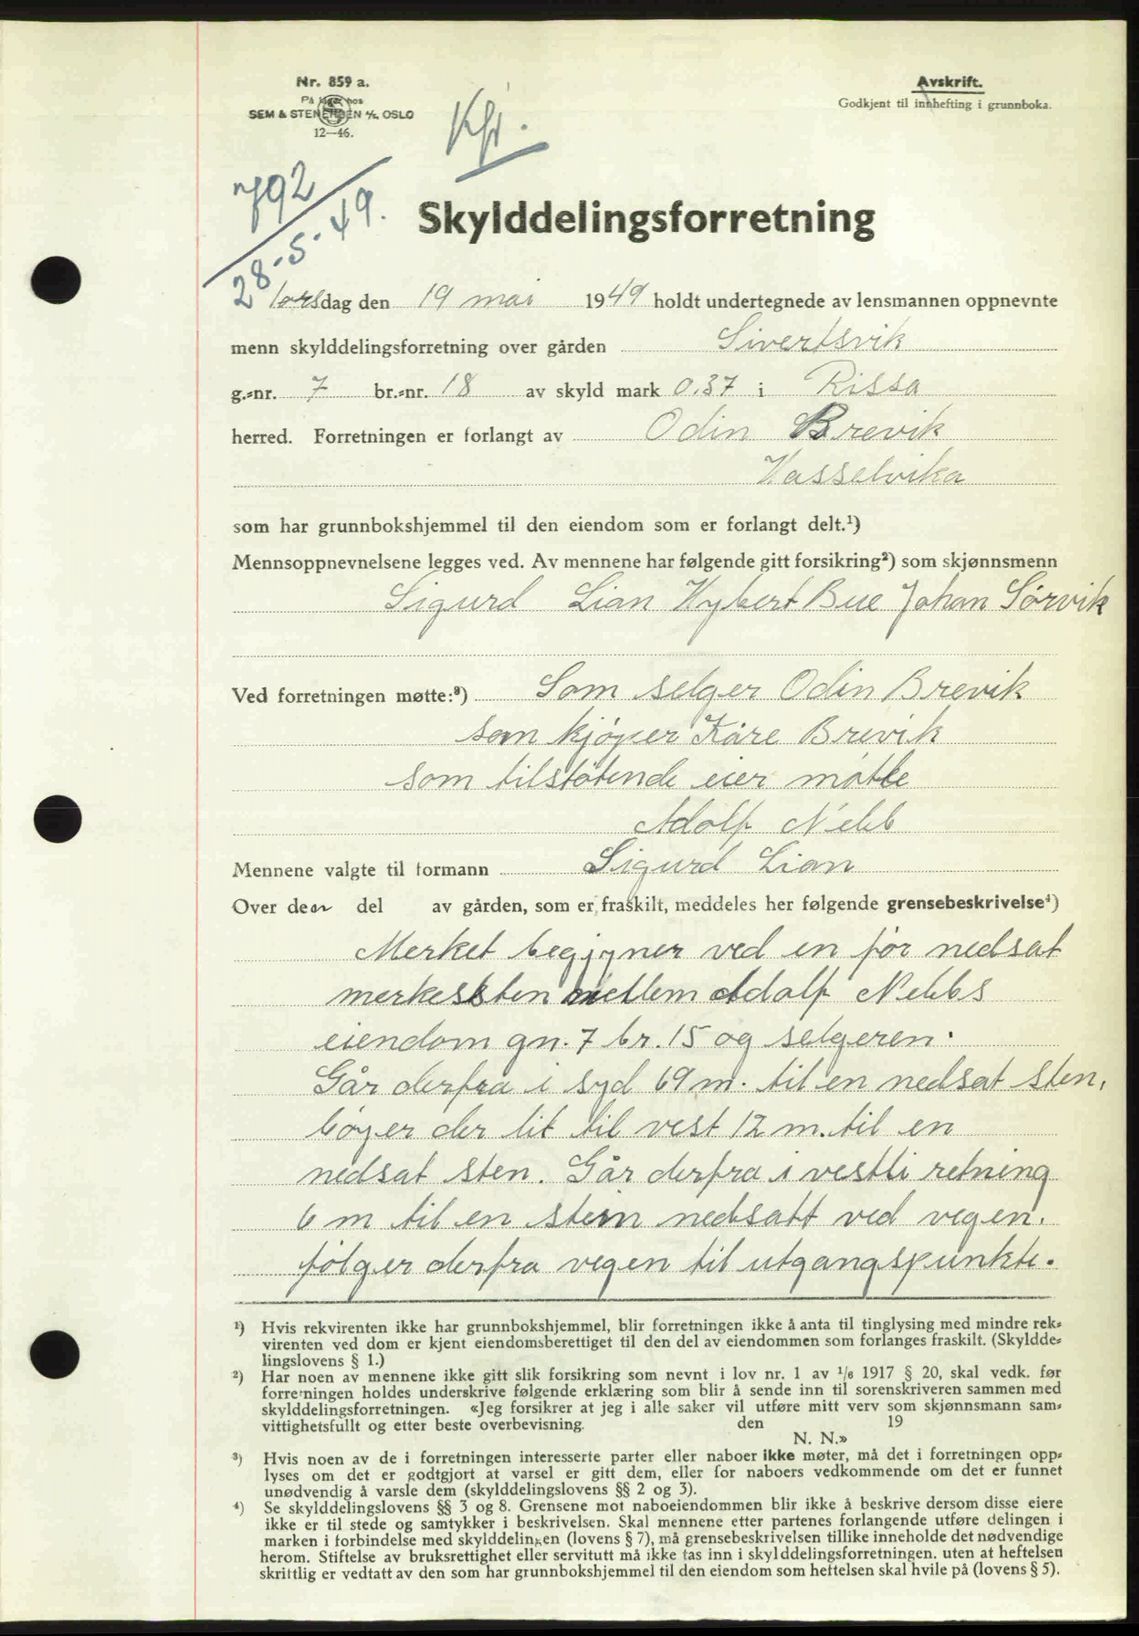 Nr. 859 a.
På lager hos
SEM & STENERSEN A/S, OSLO
12—46.
Kfr.
Avskrift.
Godkjent til innhefting i grunnboka.
792
28-5-49.
Skylddelingsforretning
Torsdag den 19 mai 1949 holdt undertegnede av lensmannen oppnevnte
menn skylddelingsforretning over gården Sivertsvik
g.-nr. 7 br.-nr. 18 av skyld mark 0.37 i Rissa
herred. Forretningen er forlangt av Odin Brevik
Hasselvika
som har grunnbokshjemmel til den eiendom som er forlangt delt.¹)
Mennsoppnevnelsene legges ved. Av mennene har følgende gitt forsikring²) som skjønnsmenn
Sigurd Lian Hybert Bue Johan Sørvik
Ved forretningen møtte:³) Som selger Odin Brevik
som kjøper Kåre Brevik
som tilstøtende eier møtte
Adolf Nebb
Mennene valgte til formann Sigurd Lian
Over den del av gården, som er fraskilt, meddeles her følgende grensebeskrivelse⁴)
Merket begjyner ved en før nedsat
merkessten mellem Adolf Nebbs
eiendom gn. 7 br. 15 og selgeren.
Går derfra i syd 69 m. til en nedsat sten,
bøyer der lit til vest 12 m. til en
nedsat sten. Går derfra i vestli retning
6 m til en stein nedsatt ved vegen.
følger derfra vegen til utgangspunkte.
¹) Hvis rekvirenten ikke har grunnbokshjemmel, blir forretningen ikke å anta til tinglysing med mindre rek-
virenten ved dom er kjent eiendomsberettiget til den del av eiendommen som forlanges fraskilt. (Skyldde-
lingslovens § 1.)
²) Har noen av mennene ikke gitt slik forsikring som nevnt i lov nr. 1 av 1/6 1917 § 20, skal vedk. før
forretningen holdes underskrive følgende erklæring som blir å sende inn til sorenskriveren sammen med
skylddelingsforretningen. «Jeg forsikrer at jeg i alle saker vil utføre mitt verv som skjønnsmann sam-
vittighetsfullt og etter beste overbevisning. den 19
N. N.»
³) Hvis noen av de i forretningen interesserte parter eller naboer ikke møter, må det i forretningen opp-
lyses om det er godtgjort at varsel er gitt dem, eller for naboers vedkommende om det er funnet
unødvendig å varsle dem (skylddelingslovens §§ 2 og 3).
⁴) Se skylddelingslovens §§ 3 og 8. Grensene mot naboeiendommen blir ikke å beskrive dersom disse eiere
ikke er til stede og samtykker i beskrivelsen. Skal mennene etter partenes forlangende utføre delingen i
marken i forbindelse med skylddelingen (lovens § 7), må grensebeskrivelsen tillike inneholde det nødvendige
herom. Stiftelse av bruksrettighet eller servitutt må ikke tas inn i skylddelingsforretningen, uten at heftelsen
skriftlig er vedtatt av den som har grunnbokshjemmel til den eiendom som heftelsen skal hvile på (lovens § 5).